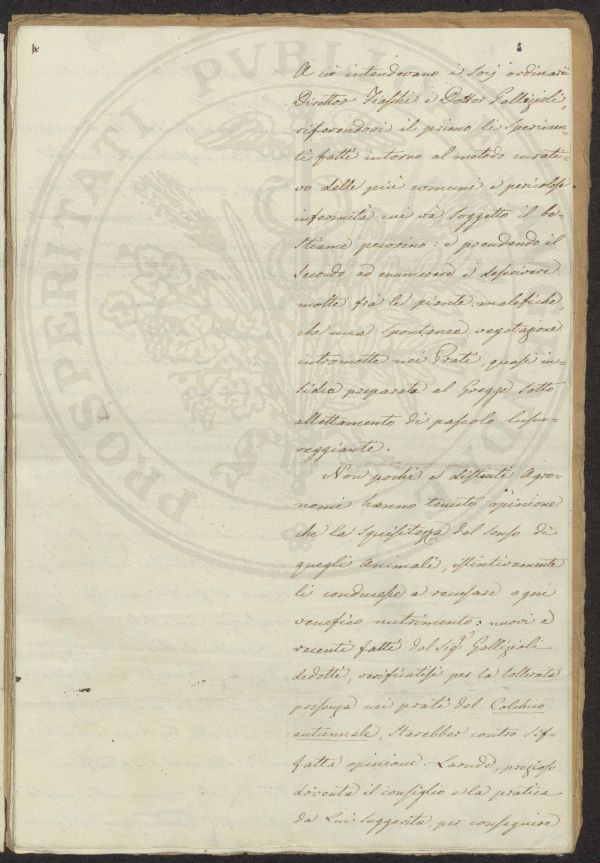 A ciò intendevano i Socj ordinarii
Direttor Fraschi e Dottor Gallizioli,
riferendosi il primo li Sperimen-
ti fatti intorno al metodo curati-
vo delle più comuni e pericolose
infermità cui và Soggetto il be-
stiame pecorino: e prendendo il
Secondo ad enumerare e descrivere
molte frà le piante malefiche,
che una Spontanea vegetazione
intromette nei Prati, quasi in-
sidia preparata al Gregge Sotto
allettamento di pascolo lussu-
reggiante.
Non pochi e distinti Agro-
nomi hanno tenuto opinione
che la Squisitezza del Senso di
quegli Animali, istintivamente
li conducesse a recusare ogni
venefico nutrimento: nuovi e
recenti fatti dal Sig.r Gallizioli
dedotti, verificatisi per la tollerata
presenza nei prati del Colchico
autunnale, Starebber contro Sif-
fatta opinione. Laonde, prezioso
diventa il consiglio e la pratica
da Lui Suggerita, per conseguire
PROSPERITATI PVBLIC